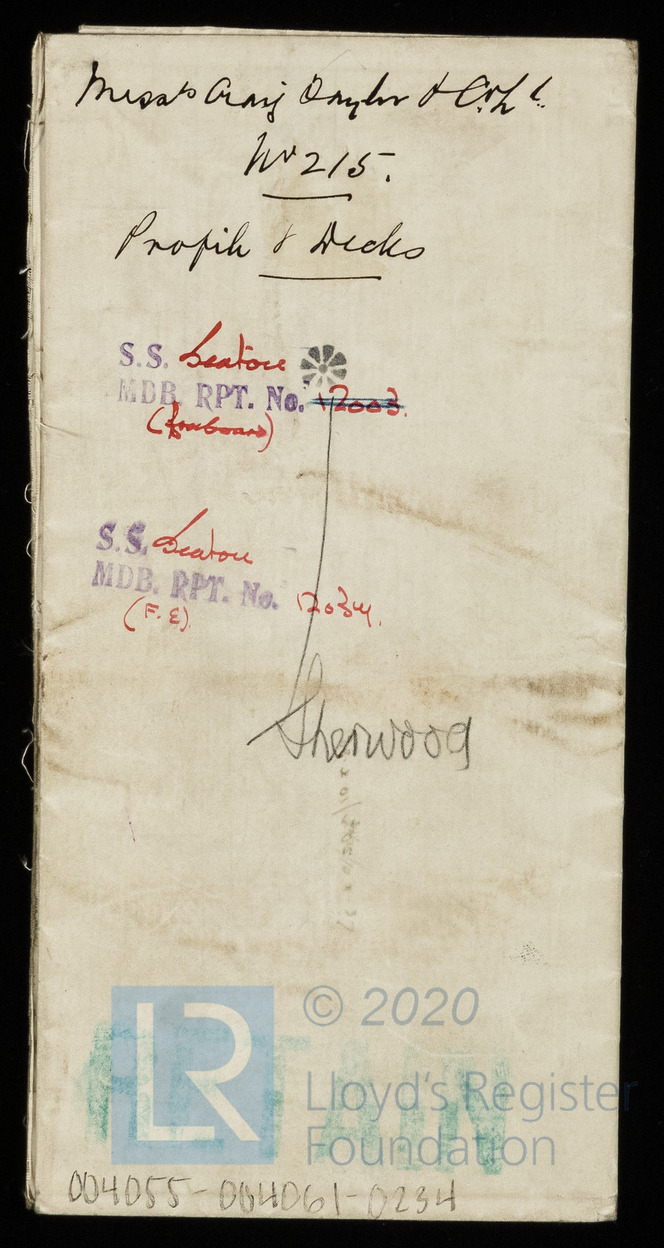 Messrs Craig Taylor & Co. Ld.
No 215.
Profile & Decks
S.S. Seatore
MDB. RPT. No. 12003.
(Freeboard)
S.S. Seatore
MDB. RPT. No. 12034.
(F.E)
Sherwood
RETAIN
LR
© 2020
Lloyd's Register
Foundation
004055-004061-0234